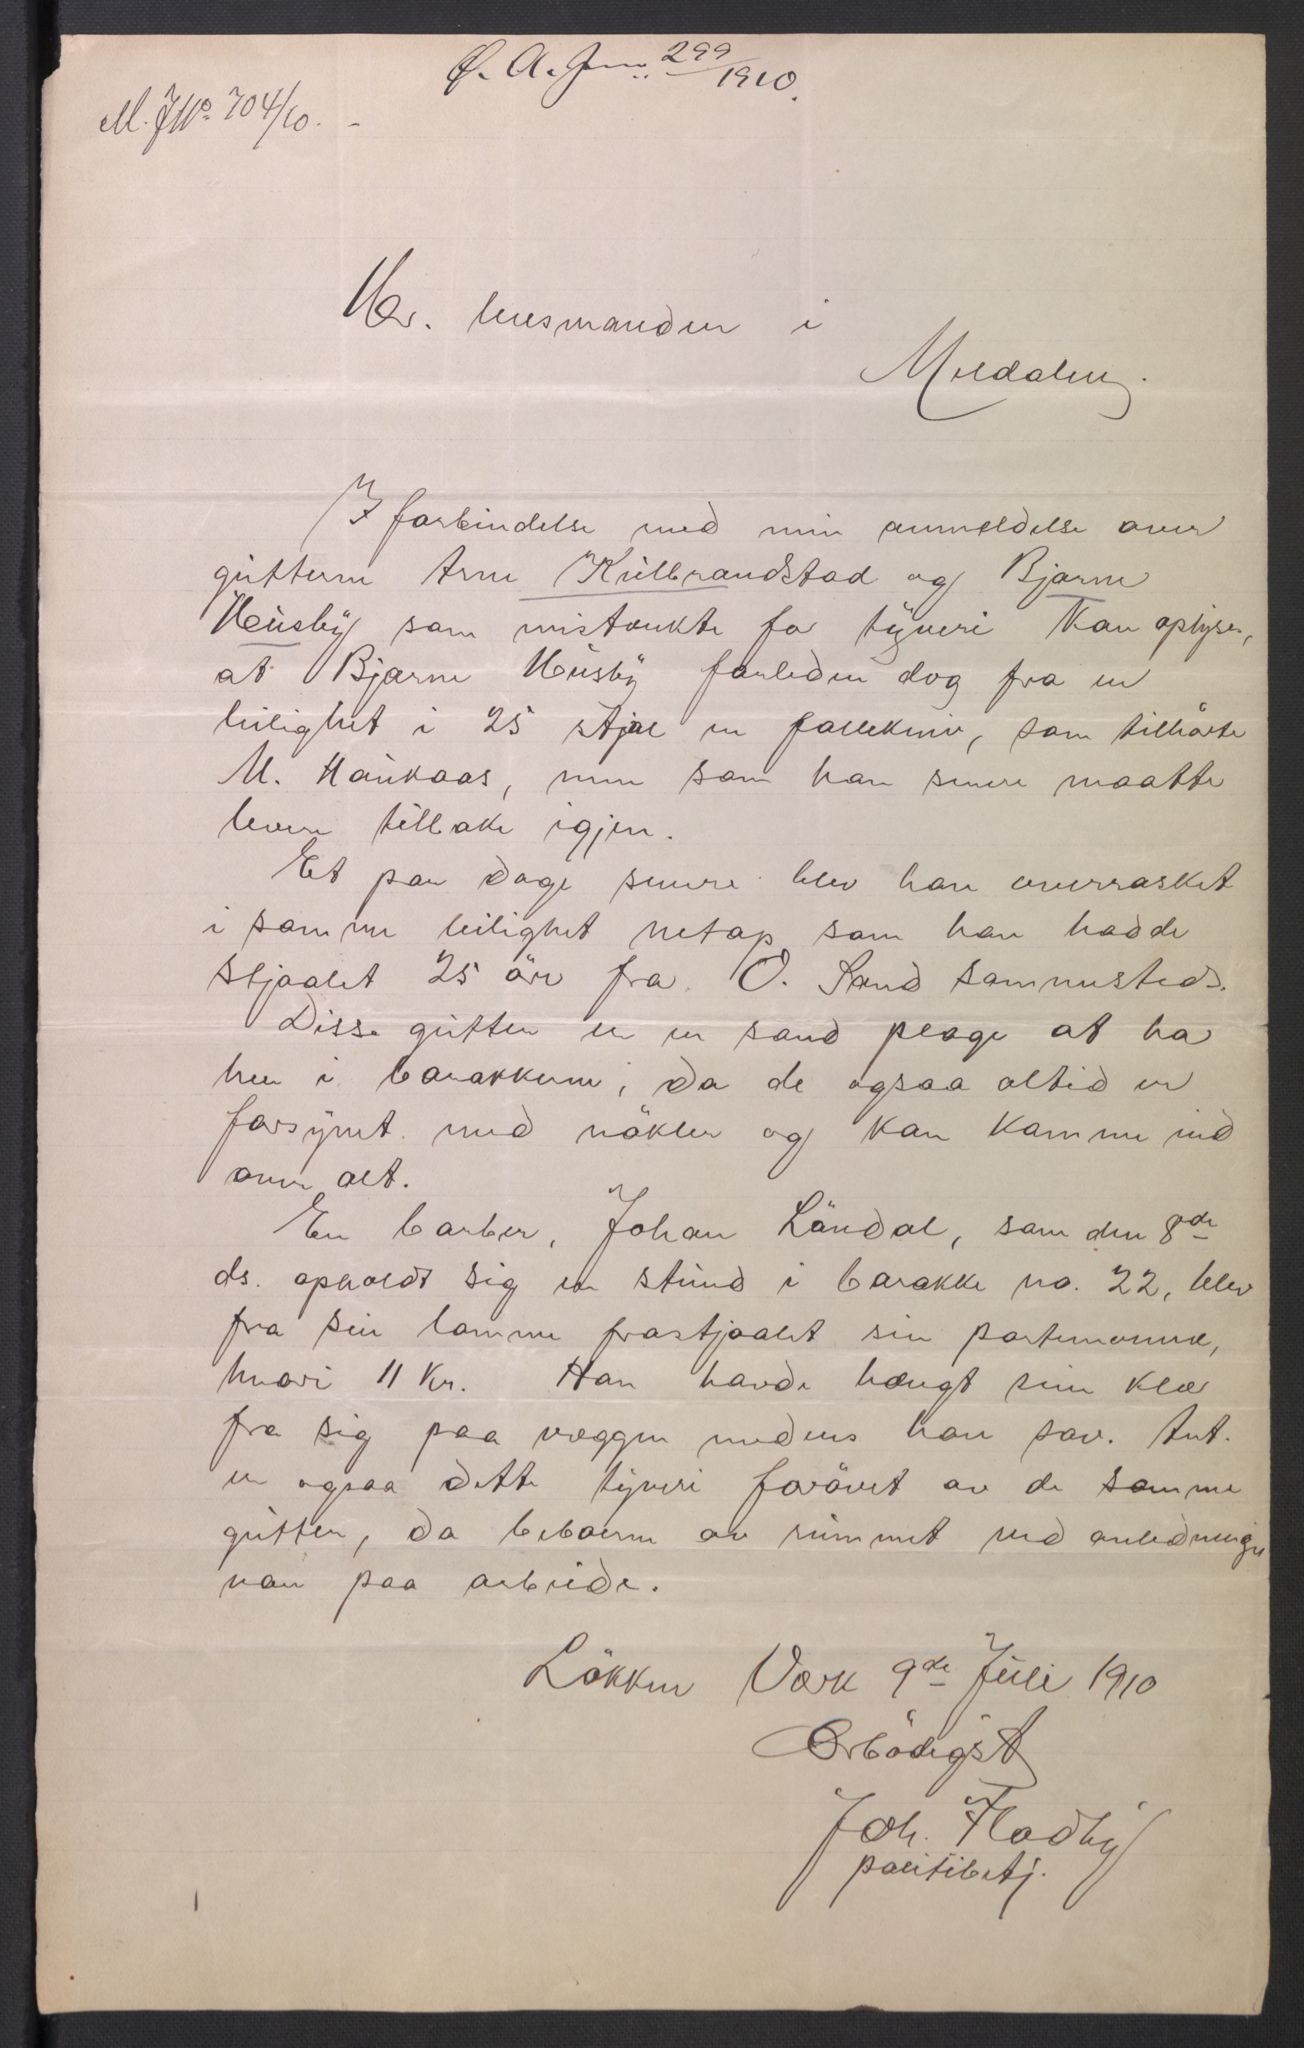 Ø. A. Jno. 299/1910.
M. J№ 704/10. -
Hr. lensmanden i
Meldalen.
I forbindelse med min anmeldelse over
gutterne Arne Kulbrandstad og Bjarne
Husby som mistænkte for tyveri kan oplyses,
at Bjarne Husby forleden dag fra en
leilighet i 25 stjal en follekniv, som tilhörte
M. Haukaas, men som han senere maatte
levere tilbake igjen.
Et par dage senere blev han overrasket
i samme leilighet netop som han hadde
stjaalet 25 öre fra O. Sand sammesteds.
Disse gutter er en sand plage at ha
her i barakkerne, da de ogsaa altid er
forsynet med nökler og kan komme ind
over alt.
En barber, Johan Löndal, som den 8de
ds. opholdt sig en stund i barakke no. 22, blev
fra sin lomme frastjaalet sin portemonnæ,
hvori 11 kr. Han havde hængt sine klær
fra sig paa væggen medens han sov. Ant.
er ogsaa dette tyveri forövet av de samme
gutter, da beboerne av rummet ved anledningen
var paa arbeide.
Lökken Værk 9de Juli 1910
Ærbödigst
Joh. Flodby
politibetj.